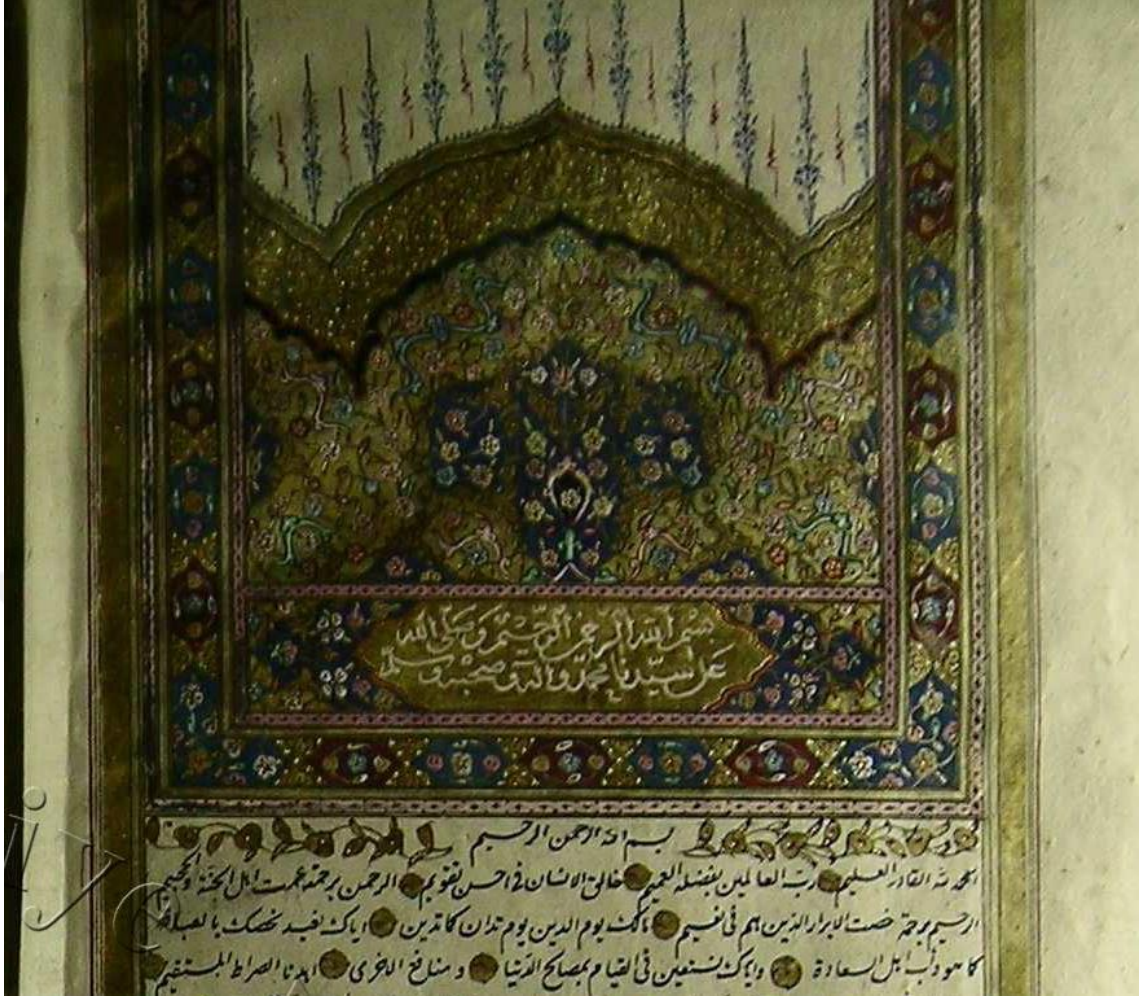 بسم الله الرحمن الرحيم وصلى الله
على سيدنا محمد وآله وصحبه وسلم
بسم الله الرحمن الرحيم
الحمد لله القادر العليم رب العالمين بفضله العميم خالق الانسان في احسن تقويم الرحمن برحمته عمرت اهل الجنة والجحيم
الرحيم برحمة خصت الابرار الذين هم في نعيم مالك يوم الدين يوم تدان كما تدين اياك نعبد نخصك بالعبادة
كما هو دأب اهل السعادة واياك نستعين في القيام بمصالح الدنيا و منافع الاخرى اهدنا الصراط المستقيم